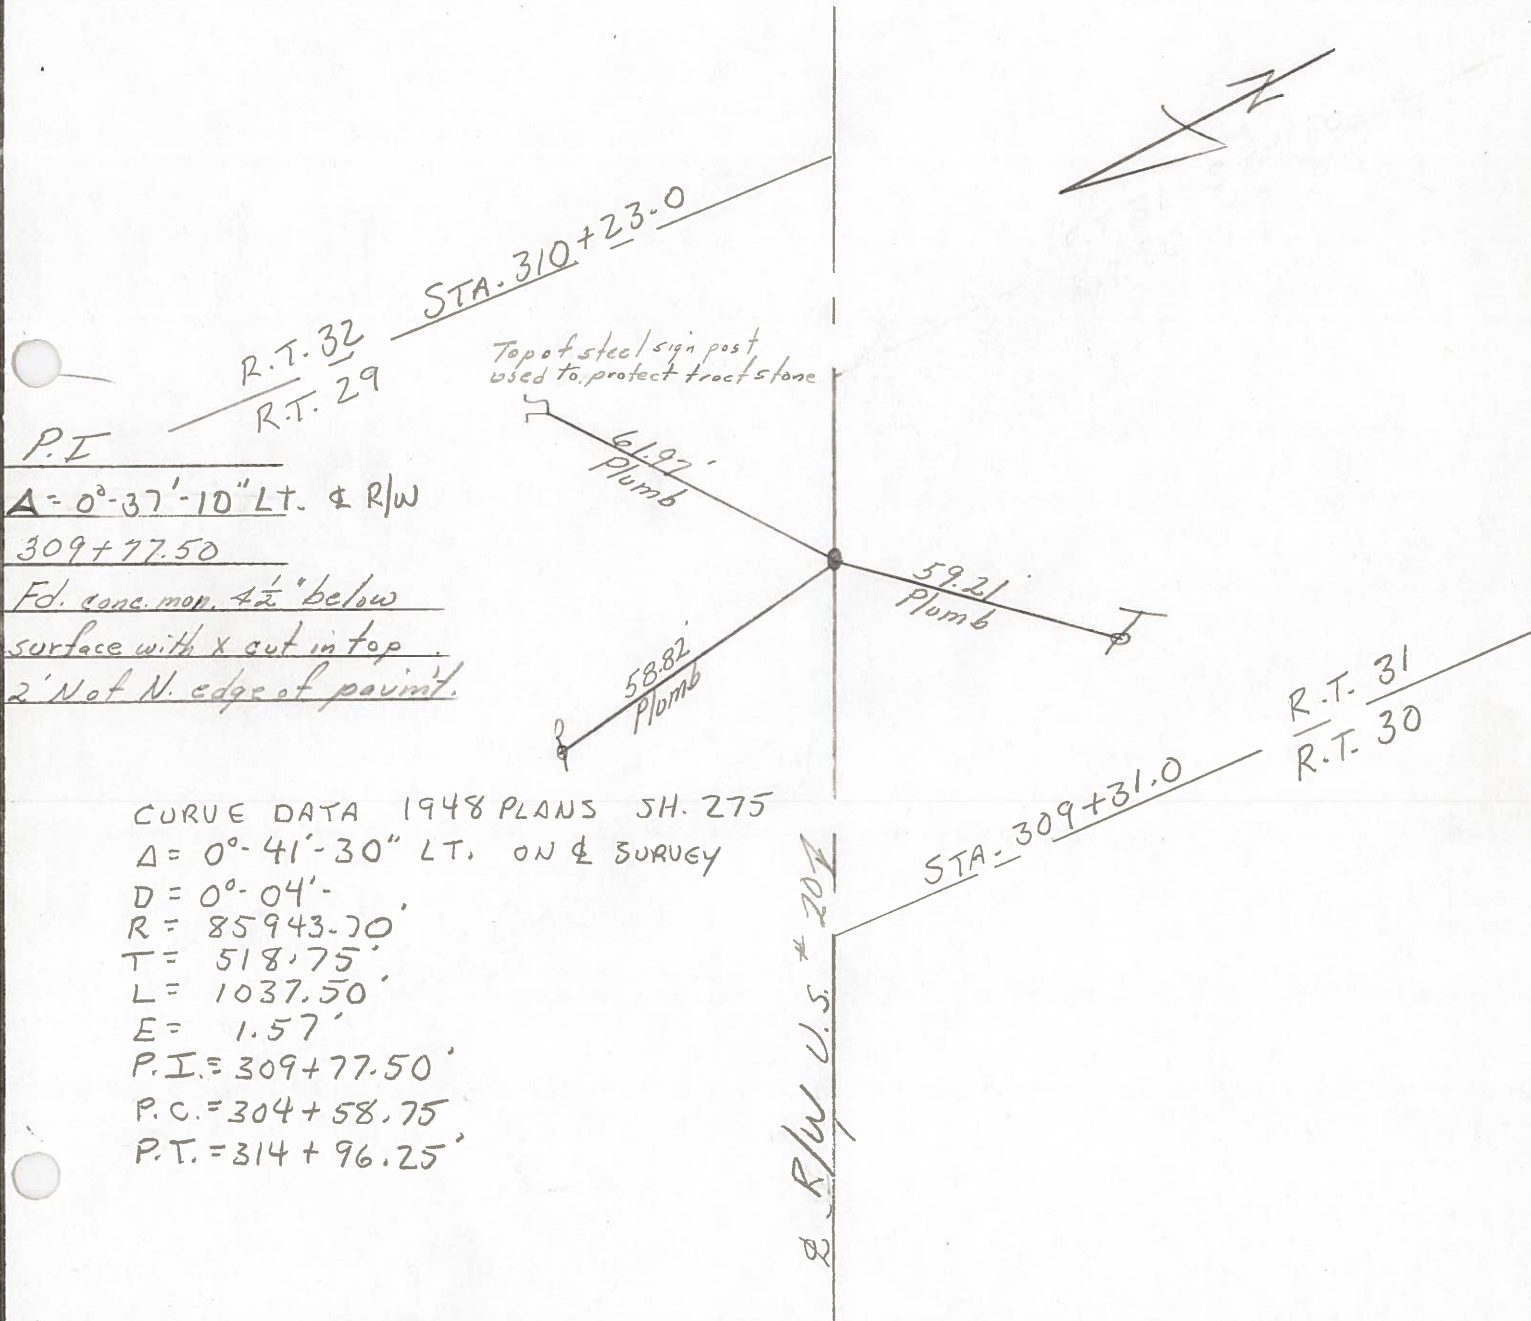 N
STA. 310+23.0
R.T. 32
R.T. 29
Top of steel sign post
used to protect tract stone
61.97'
Plumb
P.I
Δ=0°-37'-10" LT. ℄ R/W
309+77.50
Fd. conc. mon. 4½" below
surface with x cut in top.
2' N of N. edge of pavim't.
59.21'
Plumb
58.82'
Plumb
R.T. 31
R.T. 30
STA. 309+31.0
CURVE DATA 1948 PLANS SH. 275
Δ= 0°-41'-30" LT. ON ℄ SURVEY
D = 0°-04'-
R = 85943.70'
T = 518.75'
L = 1037.50'
E = 1.57'
P.I. = 309+77.50'
P.C. = 304+58.75
P.T. = 314+96.25'
℄ R/W U.S. #